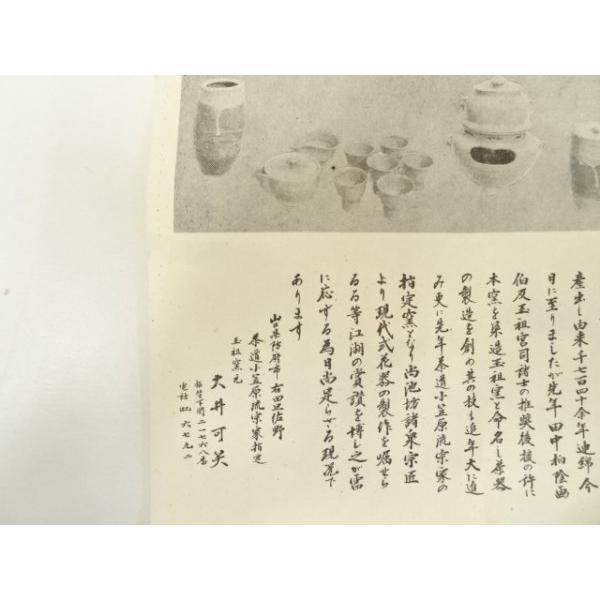 産出し由来千七百四十余年連綿今
日に至りましたが先年田中柏陰画
伯及玉祖宮司諸士の推奨後援の許に
本窯を築造玉祖窯と命名し茶器
の製造を創め其の技も逐年大に進
み更に先年茶道小笠原流宗家の
指定窯となり尚池坊諸衆宗匠
より現代式花器の製作を嘱せら
るる等江湖の賞讃を博し之が需
に応する為日尚足らざる現況で
あります
山口県防府市右田旦佐野
茶道小笠原流宗家指定
玉祖窯元
大井可笑
振替下関二一七六八番
電話 六七九二